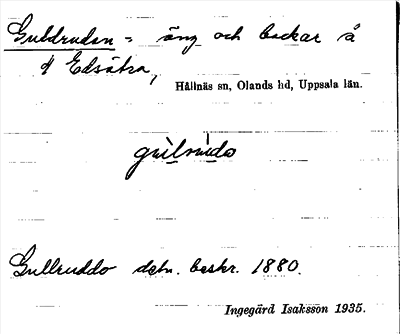 Guldrudan = äng och backar å
Edsätra,
Hållnäs sn, Olands hd, Uppsala län.
Gullruddo detn. beskr. 1880.
Ingegärd Isaksson 1935.